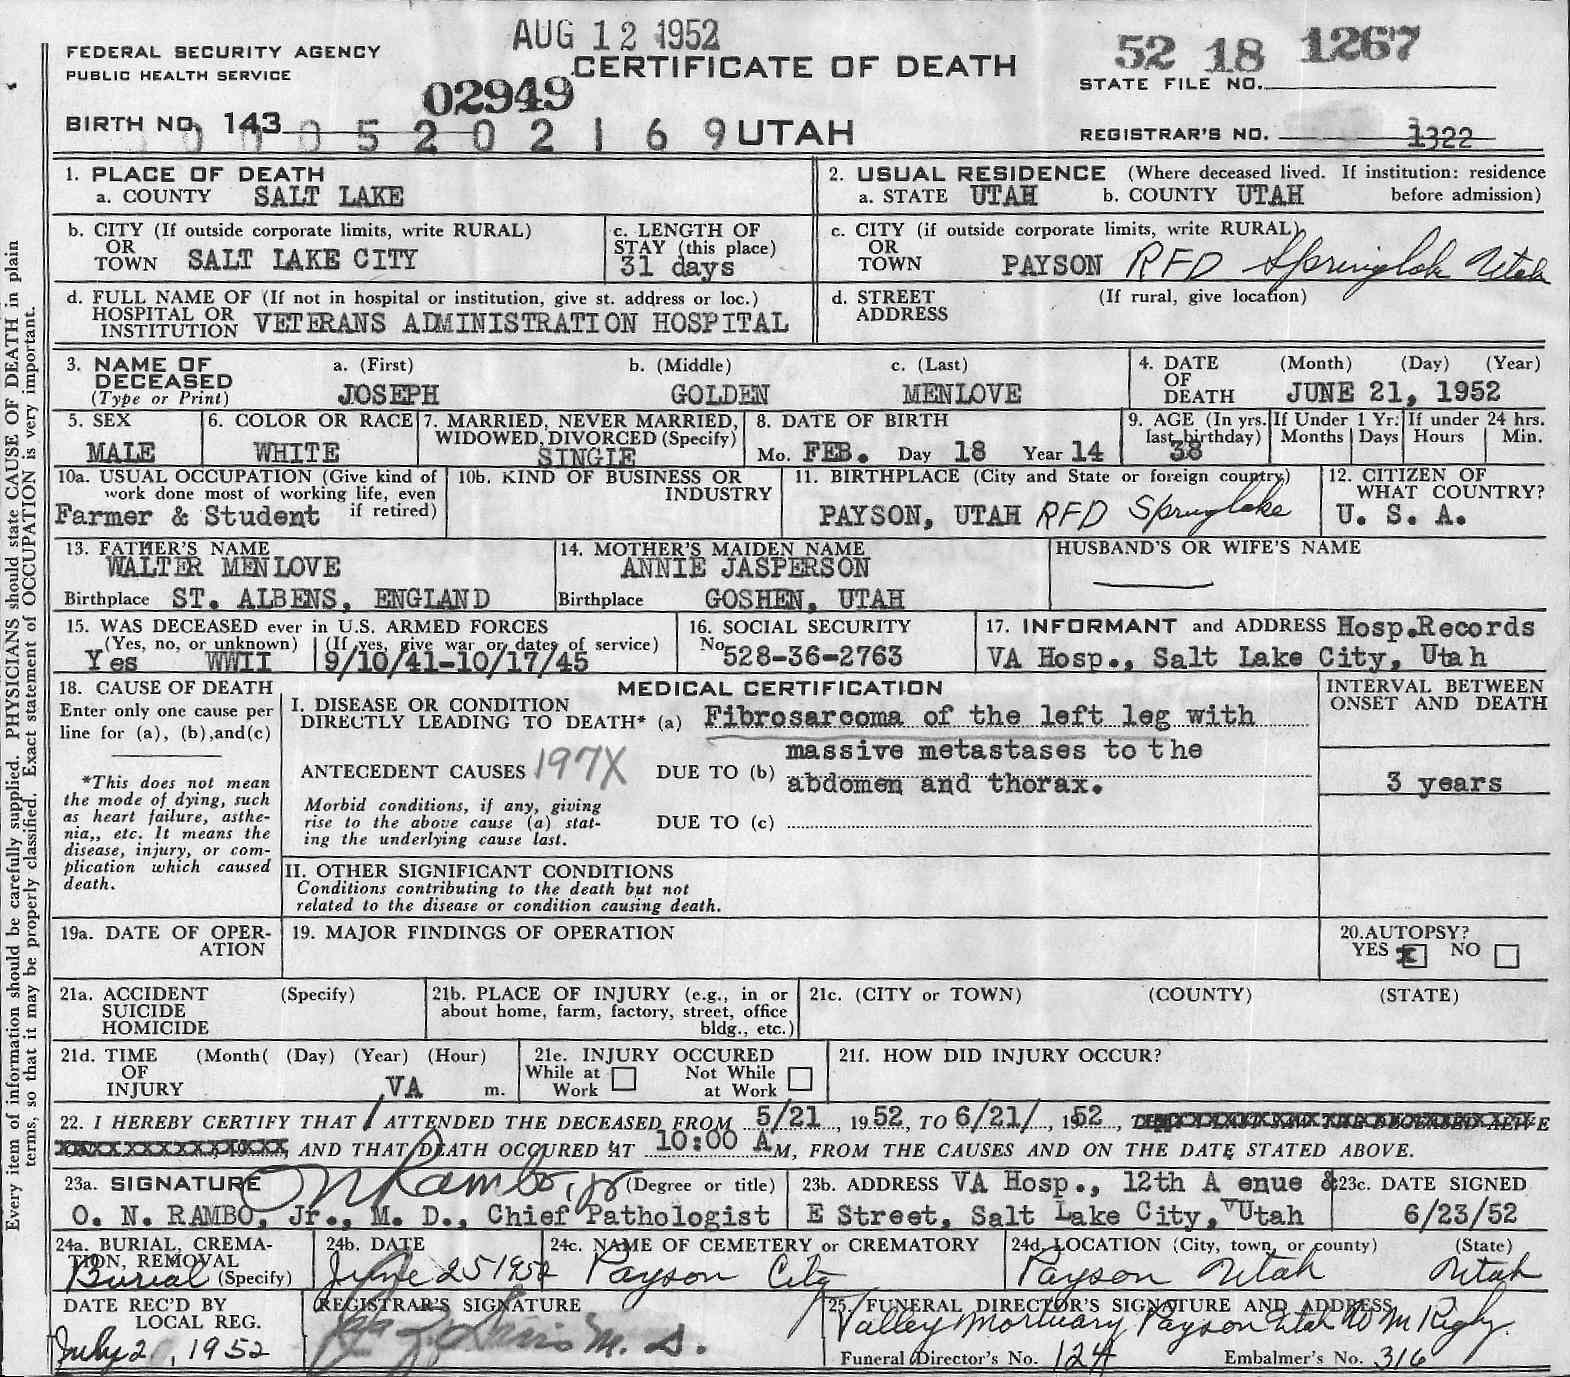 AUG 12 1952
FEDERAL SECURITY AGENCY
PUBLIC HEALTH SERVICE
CERTIFICATE OF DEATH
52 18 1267
STATE FILE NO.
02949
BIRTH NO. 143
0 0 0 5 2 0 2 1 6 9 UTAH
REGISTRAR'S NO. 1322
Every item of information should be carefully supplied. PHYSICIANS should state CAUSE OF DEATH in plain
terms, so that it may be properly classified. Exact statement of OCCUPATION is very important.
1. PLACE OF DEATH
a. COUNTY SALT LAKE
2. USUAL RESIDENCE (Where deceased lived. If institution: residence
a. STATE UTAH b. COUNTY UTAH before admission)
b. CITY (If outside corporate limits, write RURAL)
OR
TOWN SALT LAKE CITY
c. LENGTH OF
STAY (this place)
31 days
c. CITY (if outside corporate limits, write RURAL)
OR
TOWN PAYSON RFD Springlake Utah
d. FULL NAME OF (If not in hospital or institution, give st. address or loc.)
HOSPITAL OR
INSTITUTION VETERANS ADMINISTRATION HOSPITAL
d. STREET (If rural, give location)
ADDRESS
3. NAME OF a. (First) b. (Middle) c. (Last)
DECEASED
(Type or Print) JOSEPH GOLDEN MENLOVE
4. DATE (Month) (Day) (Year)
OF
DEATH JUNE 21, 1952
5. SEX
MALE
6. COLOR OR RACE
WHITE
7. MARRIED, NEVER MARRIED,
WIDOWED, DIVORCED (Specify)
SINGLE
8. DATE OF BIRTH
Mo. FEB. Day 18 Year 14
9. AGE (In yrs.
last birthday)
38
If Under 1 Yr.
Months Days
If under 24 hrs.
Hours Min.
10a. USUAL OCCUPATION (Give kind of
work done most of working life, even
Farmer & Student if retired)
10b. KIND OF BUSINESS OR
INDUSTRY
11. BIRTHPLACE (City and State or foreign country)
PAYSON, UTAH RFD Springlake
12. CITIZEN OF
WHAT COUNTRY?
U. S. A.
13. FATHER'S NAME
WALTER MENLOVE
Birthplace ST. ALBENS, ENGLAND
14. MOTHER'S MAIDEN NAME
ANNIE JASPERSON
Birthplace GOSHEN, UTAH
HUSBAND'S OR WIFE'S NAME
15. WAS DECEASED ever in U.S. ARMED FORCES
(Yes, no, or unknown) (If yes, give war or dates of service)
Yes WWII 9/10/41-10/17/45
16. SOCIAL SECURITY
No. 528-36-2763
17. INFORMANT and ADDRESS Hosp.Records
VA Hosp., Salt Lake City, Utah
18. CAUSE OF DEATH
Enter only one cause per
line for (a), (b),and(c)
*This does not mean
the mode of dying, such
as heart failure, asthe-
nia,, etc. It means the
disease, injury, or com-
plication which caused
death.
MEDICAL CERTIFICATION
I. DISEASE OR CONDITION
DIRECTLY LEADING TO DEATH* (a) Fibrosarcoma of the left leg with
massive metastases to the
ANTECEDENT CAUSES 197X DUE TO (b)
abdomen and thorax.
Morbid conditions, if any, giving
rise to the above cause (a) stat-
ing the underlying cause last.
DUE TO (c)
INTERVAL BETWEEN
ONSET AND DEATH
3 years
II. OTHER SIGNIFICANT CONDITIONS
Conditions contributing to the death but not
related to the disease or condition causing death.
19a. DATE OF OPER-
ATION
19. MAJOR FINDINGS OF OPERATION
20.AUTOPSY?
YES X NO
21a. ACCIDENT (Specify)
SUICIDE
HOMICIDE
21b. PLACE OF INJURY (e.g., in or
about home, farm, factory, street, office
bldg., etc.)
21c. (CITY or TOWN) (COUNTY) (STATE)
21d. TIME (Month( (Day) (Year) (Hour)
OF
INJURY m.
21e. INJURY OCCURED
While at Work
Not While at Work
21f. HOW DID INJURY OCCUR?
VA
22. I HEREBY CERTIFY THAT / ATTENDED THE DECEASED FROM 5/21, 1952, TO 6/21/, 1952,
AND THAT DEATH OCCURED AT 10:00 A M, FROM THE CAUSES AND ON THE DATE STATED ABOVE.
23a. SIGNATURE O N Rambo, Jr (Degree or title)
O. N. RAMBO, Jr., M. D., Chief Pathologist
23b. ADDRESS VA Hosp., 12th A enue &
E Street, Salt Lake City, vUtah
23c. DATE SIGNED
6/23/52
24a. BURIAL, CREMA-
TION, REMOVAL
Burial (Specify)
24b. DATE
June 25 1952
24c. NAME OF CEMETERY or CREMATORY
Payson City
24d. LOCATION (City, town, or county) (State)
Payson Utah Utah
DATE REC'D BY
LOCAL REG.
July 2, 1952
REGISTRAR'S SIGNATURE
M. D.
25. FUNERAL DIRECTOR'S SIGNATURE AND ADDRESS
Valley Mortuary Payson Utah W M Rigby.
Funeral Director's No. 124 Embalmer's No. 316